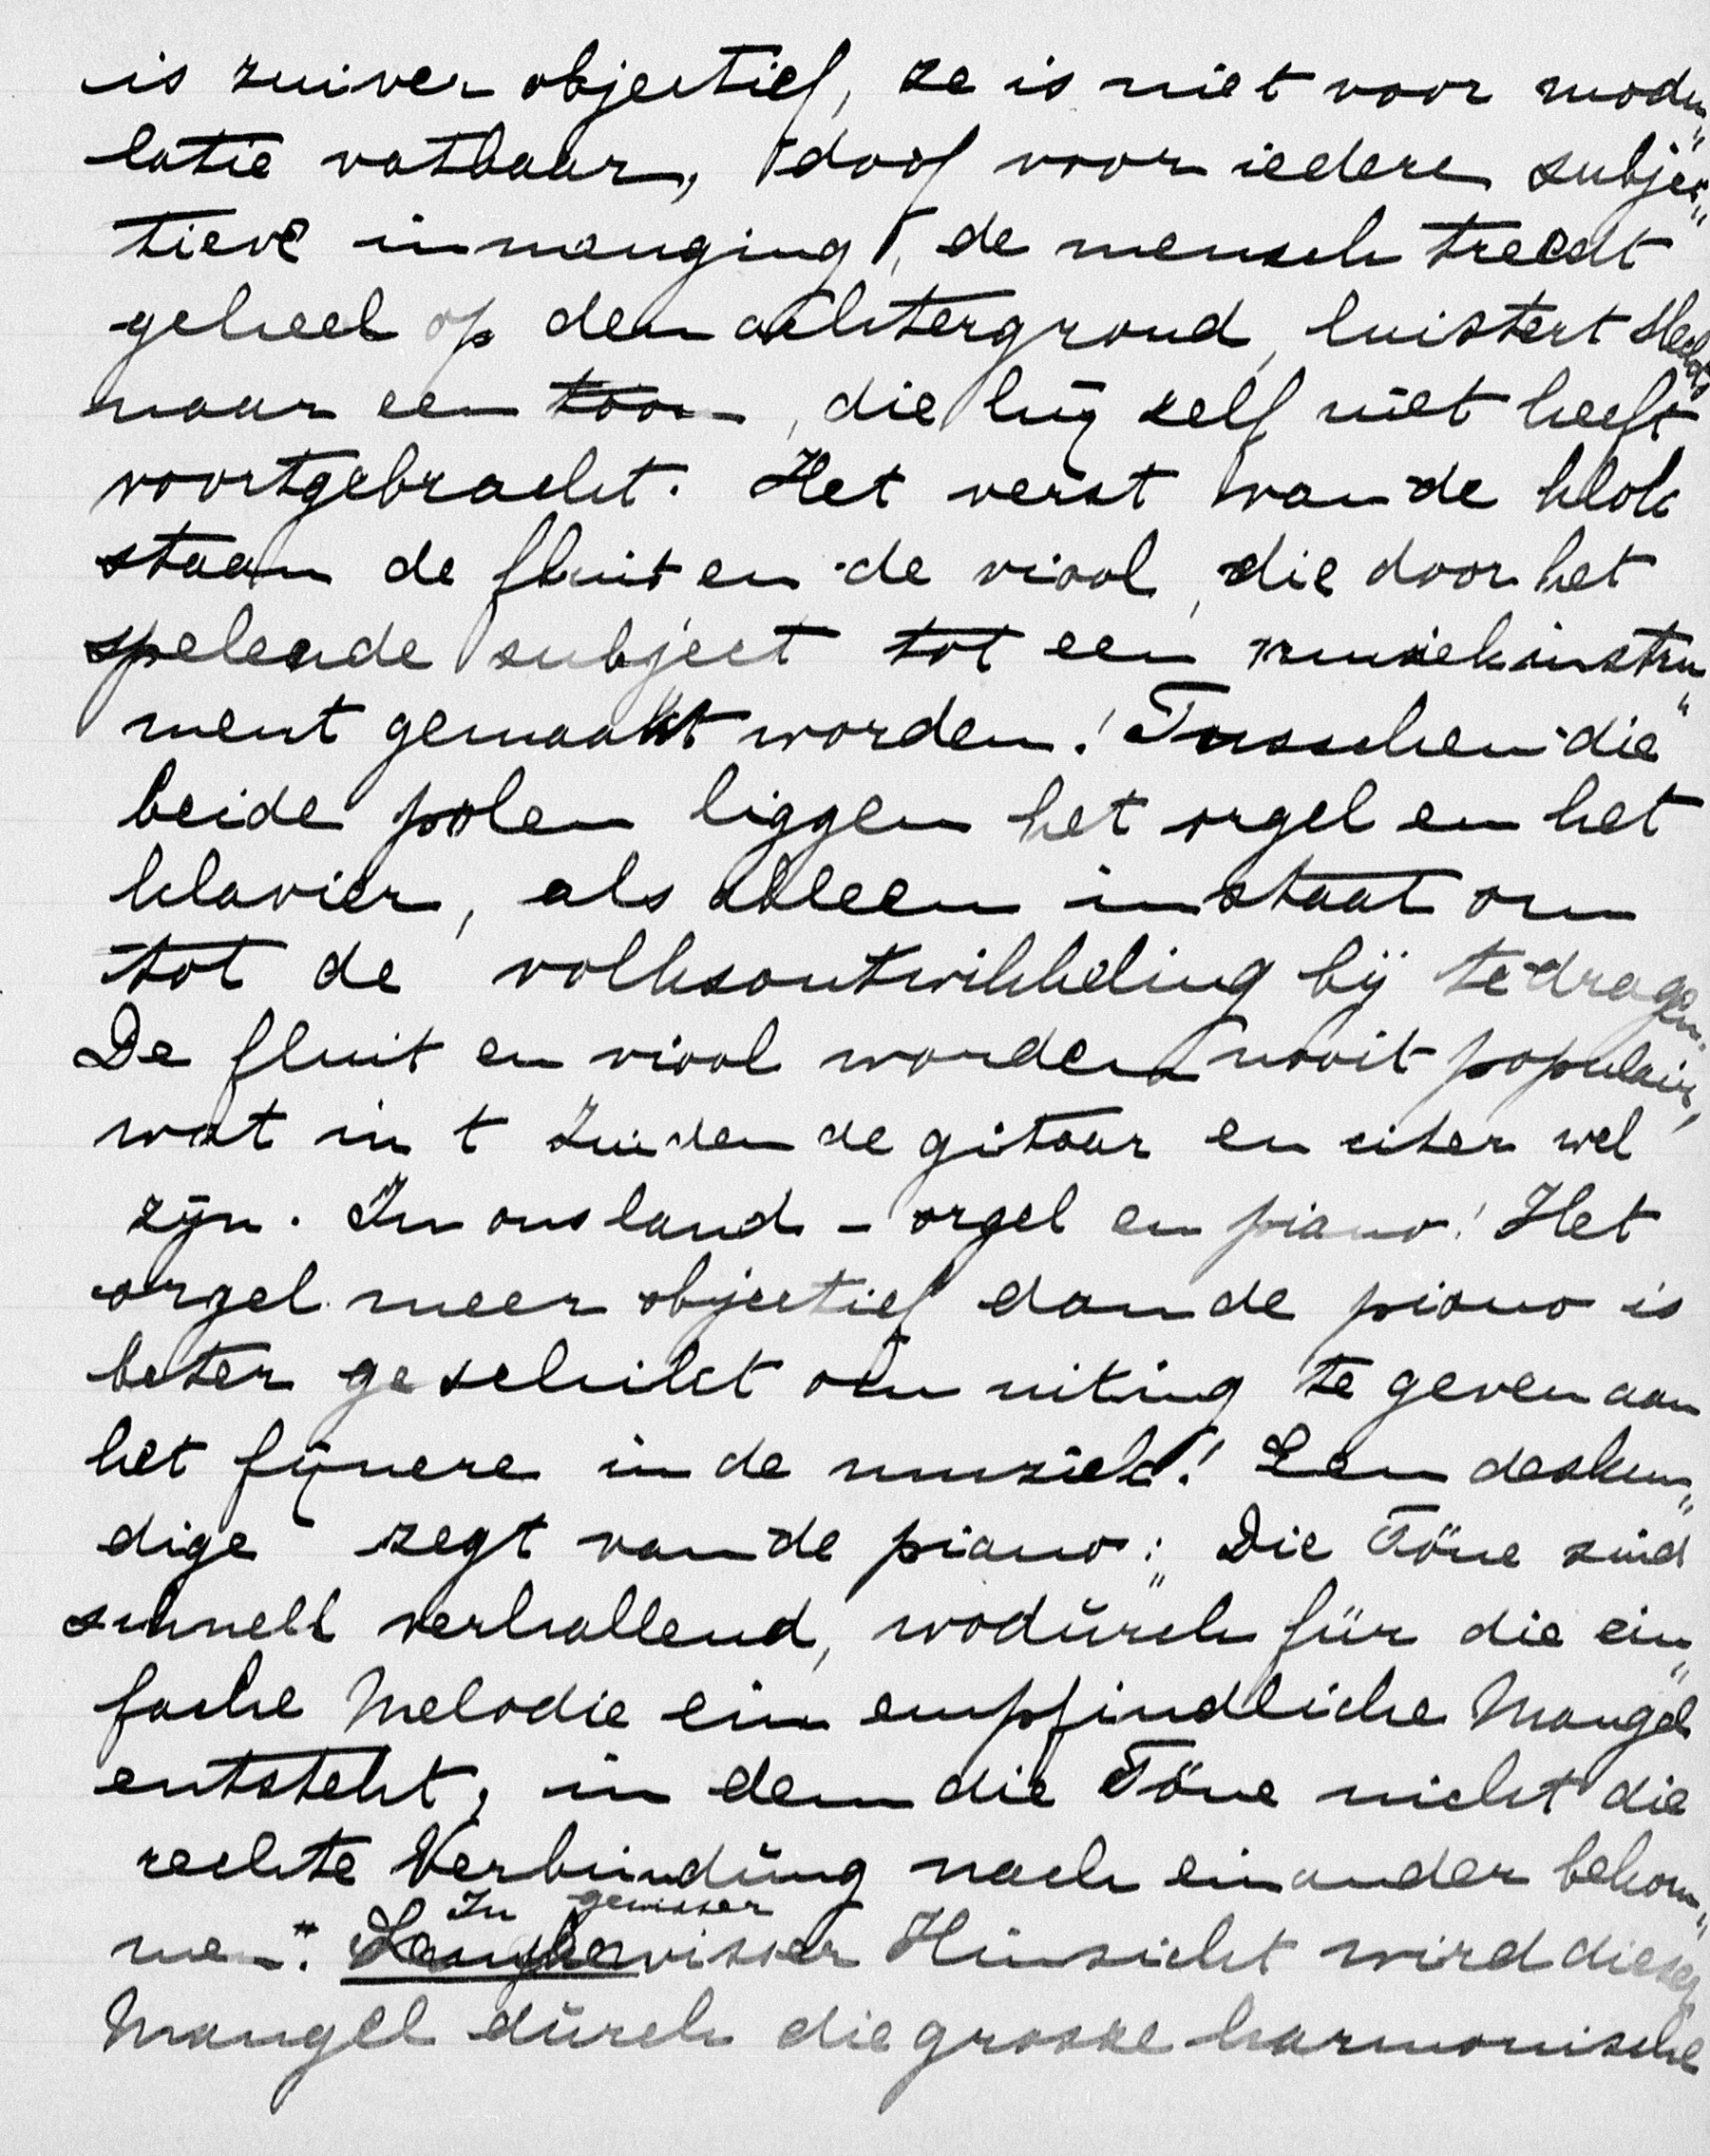 is zuiver objectief, ze is niet voor modu„
latie vatbaar, doof voor iedere subjec„
tieve inmenging, de mensch treedt
geheel op den achtergrond, luistert slechts
naar een toon, die hij zelf niet heeft
voortgebracht. Het verst van de klok
staan de fluit en de viool, die door het
spelende subject tot een muziekinstru„
ment gemaakt worden! Tusschen die
beide polen liggen het orgel en het
klavier, als alleen in staat om
tot de volksontwikkeling bij te dragen.
De fluit en viool worden nooit populair,
wat in t Zuiden de gitaar en citer wel
zijn. In ons land - orgel en piano! Het
orgel meer objectief dan de piano is
beter geschikt om uiting te geven aan
het fijnere in de muziek! Een deskun„
dige zegt van de piano: „Die Töne sind
schnell verhallend, wodŭrch für die ein„
fache Melodie ein empfindliche Mangel
entsteht, in dem die Töne nicht die
rechte Verbindŭng nach einander bekom„
men". In gewisser Hinsicht wird dieser
Mangel dŭrch die grosse harmonische